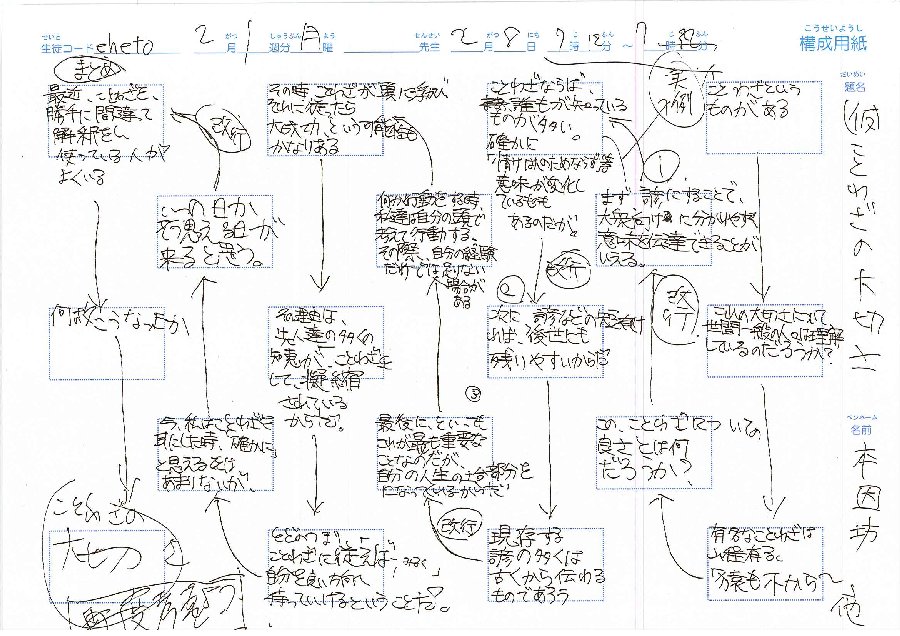 せいと
生徒コード eheto
2 がつ 月 1 しゅうぶん 週分 月 よう 曜
せんせい
先生 2 がつ 月 8 にち 日 7 じ 時 12 ふん 分 ～ 7 じ ふん 分
こうせいようし
構成用紙
だいめい
題名
(仮)ことわざの大切さ
ペンネーム
名前
本因坊
ことわざという
ものがある
これの大切さについて
世間一般の人々は理解
しているのだろうか？
有名なことわざは
山程有る。
「猿も木から～
他
実例
①
まず、諺にすることで、
大衆向けに分かりやすく
意味を伝達できることが
いえる。
改行
この、ことわざについての
良さとは何
だろうか？
ことわざならば、
誰もが知っている
ものが多い。
確かに
「情けは人のためならず」等
意味が変化し
ているものも
あるのだが。
改行
②
次に、諺などの
れば、後世にも
残りやすいからだ
現存する
諺の多くは
古くから伝わる
ものであろう
何か行動をする時、
私達は自分の頭で
考えて行動する。
その際、自分の経験
だけでは足りない
場合が
ある
③
最後に、といっても
これが最も重要な
ことなのだが、
自分の人生の土台部分を
になってくれるからだ
改行
その時、ことわざが頭に浮かび
それに従ったら
大成功、という可能性も
かなりある
その理由は、
先人達の多くの
失敗が、ことわざと
して、凝縮
されている
からだ。
とどのつまり、
ことわざに従えば
自分を良い方向に
持っていけるということだ。
改行
いつの日か、
そう思える日が
来ると思う。
今、私はことわざを
耳にした時、確かに、
と思えるだけ
あまりないが、
まとめ
最近、ことわざを、
勝手に間違って
解釈をし
使っている人が
よくいる
何故こうなったか
ことわざの
大切